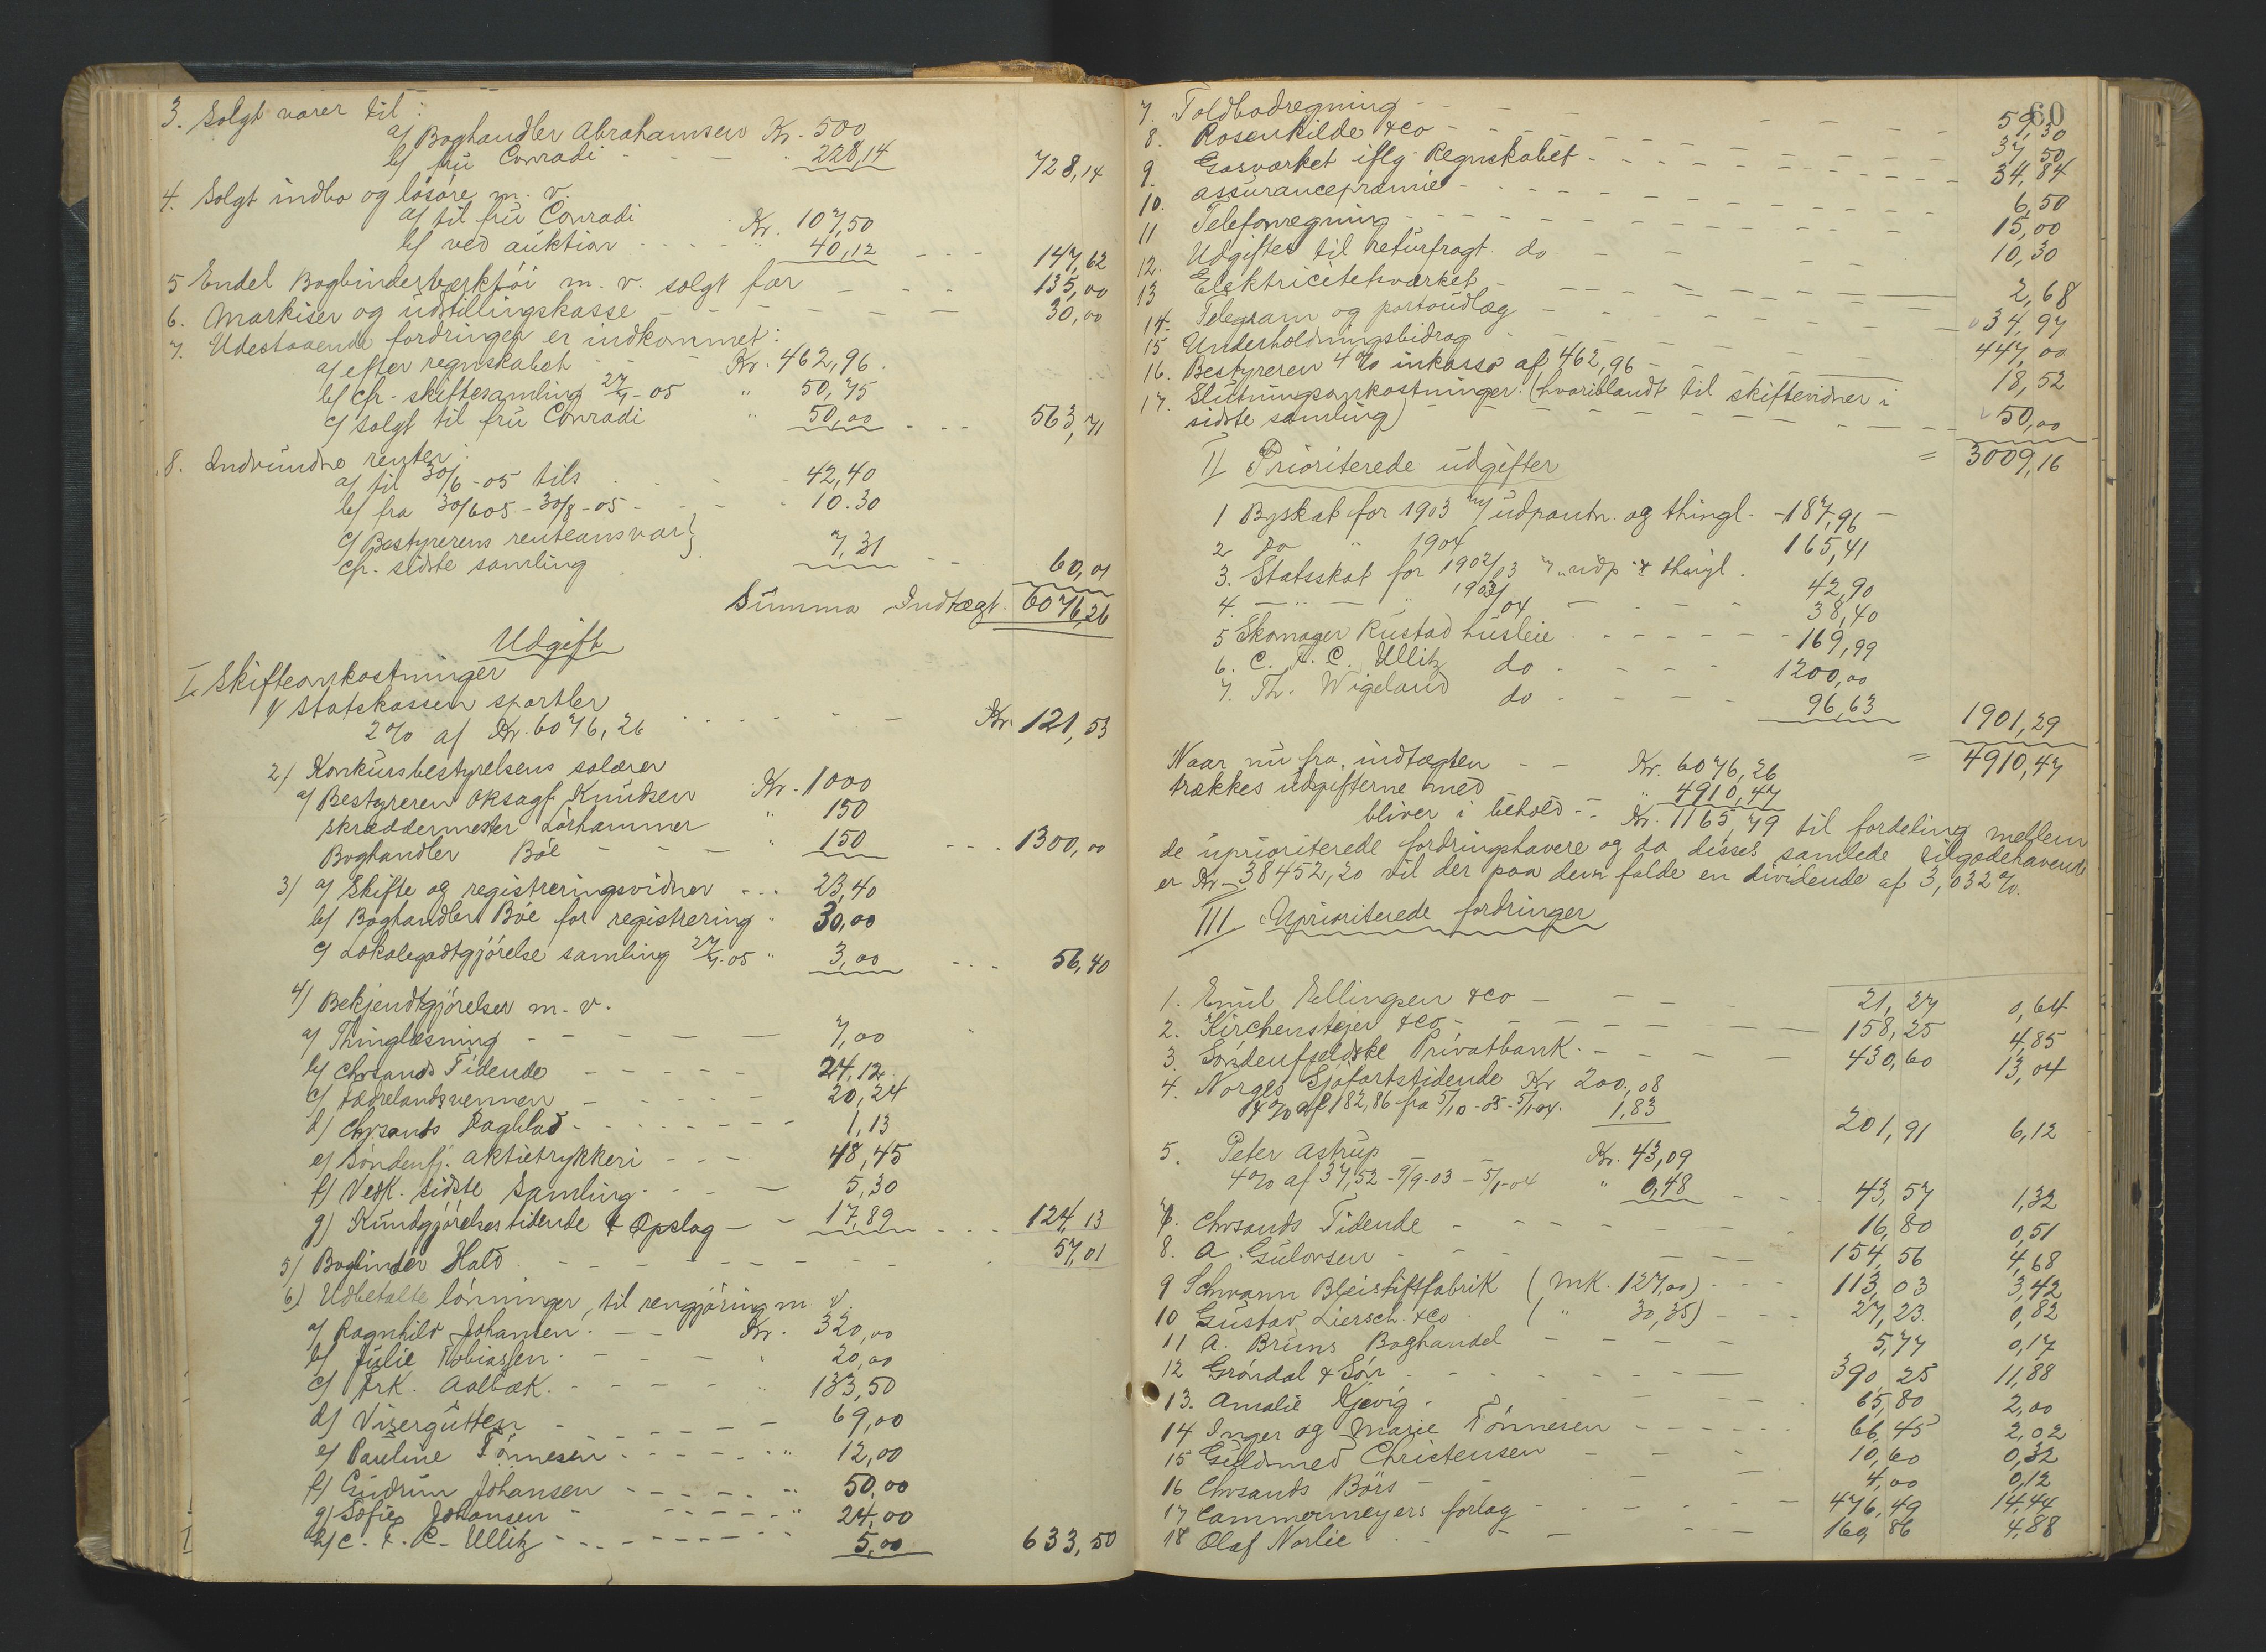 3. Solgt varer til:
a/ Boghandler Abrahamsen Kr. 500
b/ fru Conradi - - - " 228,14 728,14
4. Solgt indbo og løsøre m. v.
a/ til fru Conradi Kr. 107,50
b/ ved auktion - - - " 40,12 - - - 147,62
5 Endel Bogbinderværktøi m. v. solgt for - - - 135,00
6. Markiser og udstillingskasse - - - - - - 30,00
7. Udestaaende fordringer er indkommet:
a/ efter regnskabet - - Kr. 462,96.
b/ cfr. skiftesamling 27/7-05 " 50,75
c/ solgt til fru Conradi " 50,00 - - - 563,71
8. Indvundne renter:
a/ til 30/6-05 tils - - - 42,40
b/ fra 30/6 05 - 30/8-05 - - - 10.30
c/ Bestyrerens renteansvar }
cfr. sidste samling 7,31 - - 60,01
Summa Indtægt. 6076,26
Udgift
I. Skifteomkostninger
1/ Statskassen sportler
2% af Kr. 6076,26 - - - - - Kr. 121,53
2/ Konkursbestyrelsens salærer
a/ Bestyreren oksagf. Knudsen Kr. 1000
Skræddermester Lørhammer " 150
Boghandler Bøe - - - " 150 - - - 1300,00
3) a/ Skifte og registreringsvidner - - - 23,40
b/ Boghandler Bøe for registrering " 30,00
c/ Lokalegodtgjørelse samling 27/7-05 " 3,00 - - - 56,40
4/ Bekjendtgjørelser m. v.
a/ Thinglæsning - - - - - 7,00
b/ Chrsands Tidende - - - - - 24,12
c/ Fædrelandsvennen - - - - - 20,24
d/ Chrsands Dagblad - - - - - 1,13
e/ Søndenfj. aktietrykkeri - - - 48,45
f/ Vedk. sidste samling - - - 5,30
g) Kundgjørelsestidende & Opslag - - 17,89 - - - 124,13
5/ Bogbinder Hald - - - - - - - - 57,01
6) Udbetalte lønninger, til rengjøring m. v.
a/ Ragnhild Johansen. - - Kr. 320,00
b/ Julie Tobiassen. - - - " 20,00
c/ Frk. Aalbæk. - - - - " 133,50
d/ Visergutten - - - - - 69,00
e/ Pauline Tønnesen - - - - " 12,00
f/ Gudrun Johansen - - - - " 50,00
g/ Sofie Johansen - - - - " 24,00
h/ C. F. C. Ullitz - - - - - 5,00 633,50
60
7. Toldbodregning - - - - - 59,30
8. Rosenkilde & Co - - - - - 37,50
9. Gasværket iflg. Regnskabet - - - - - 34,84
10. Assurancepræmie - - - - - 6,50
11 Telefonregning - - - - - 15,00
12. Udgifter til returfragt. do - - - - 10,30
13 Elektricitetsværket - - - - - 2,68
14. Telegram og portoudlæg - - - - - 34,97
15 Underholdningsbidrag - - - - - 447,00
16. Bestyreren 4% inkasso af 462,96 - - - - 18,52
17. Slutningsomkostninger. (hvoriblandt til skiftevidner i
sidste samling) - - - - - 50,00
= 3009,16
II Prioriterede udgifter
1 Byskat for 1903 m/ udpantn. og thingl. - 187,96 -
2 Do " 1904 165,41
3. Statsskat for 1902/03 m. udp. & thingl. 42,90
4. - " - " 1903/04 - - - - 38,40
5 Skomager Rustad husleie - - - - - 169,99
6. C. F. C. Ullitz do - - - - 1200,00
7. Th. Wigeland do - - - - 96,63 1901,29
= 4910,47
Naar nu fra indtægten - - Kr. 6076,26
trækkes udgifterne med " 4910,47
bliver i behold - - Kr. 1165,79 til fordeling mellem
de uprioriterede fordringshavere og da disses samlede tilgodehavende
er Kr. 38452,20 vil der paa dem falde en dividende af 3,032%.
III Uprioriterede fordringer
1. Emil Ellingsen & Co - - - - 21,27 0,64
2. Kirchensteier & Co - - - - - 158,25 4,85
3. Søndenfjeldske Privatbank. - - - - 430,60 13,04
4. Norges Sjøfartstidende Kr 200,08
4% af 182,86 fra 5/10-03 - 5/1-04. 1,83 201,91 6,12
5. Peter Astrup Kr. 43,09
4% af 37,52 - 9/9-03 - 5/1-04 " 0,48 - - - 43,57 1,32
7. Chrsands Tidende - - - - - 16,80 0,51
8. A. Gulovsen - - - - - 154,56 4,68
9 Schwann Bleistiftfabrik (MK. 127,00) - - - 113,03 3,42
10 Gustav Liersch & Co ( " 30,35) - - - 27,23 0,82
11 A. Bruns Boghandel - - - - 5,77 0,17
12 Grøndal & Søn - - - - - 390,25 11,88
13. Amalie Kjevig - - - - - 65,80 2,00
14 Inger og Marie Tønnesen - - - - - 66,45 2,02
15 Guldsmed Christensen - - - 10,60 0,32
16 Chrsands Børs - - - - 4,00 0,12
17 Cammermeyers forlag - - - - - 476,49 14,44
18 Olaf Norlie - - - - - 160,86 4,88